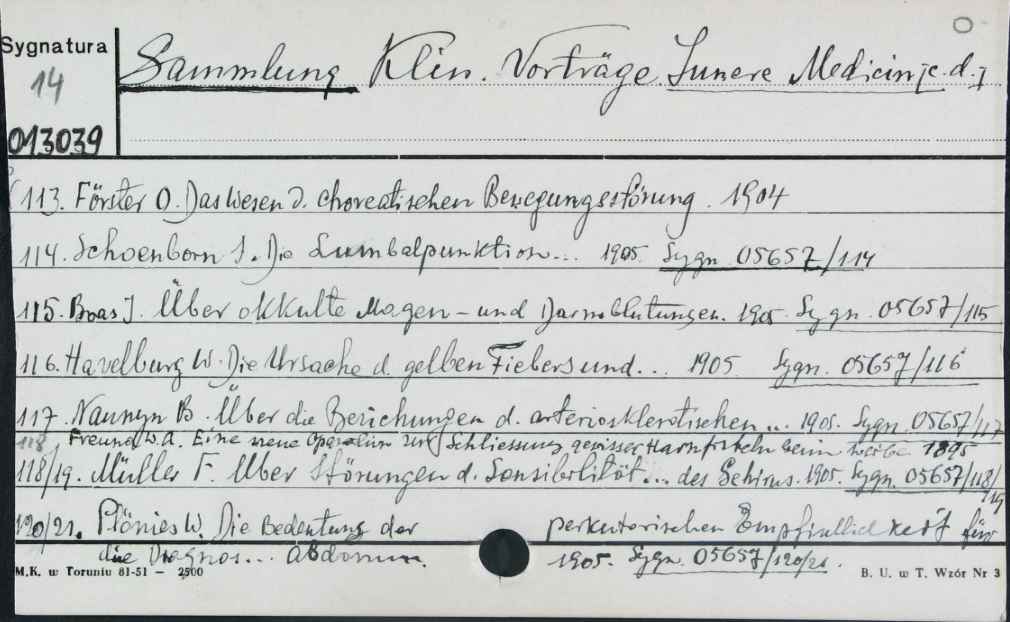 Sygnatura
14
013039
Sammlung Klin. Vorträge Innere Medicin [c.d.]
113. Förster O. Das Wesen d. choreatischen Bewegungsstörung. 1904
114. Schoenborn S. Die Lumbalpunktion... 1905 Sygn. 05657/114
115. Boas J. Über okkulte Magen - und Darmblutungen. 1905. Sygn. 05657/115
116. Havelburg W. Die Ursache d. gelben Fiebers und... 1905 Sygn. 05657/116
117. Naunyn B. Über die Beziehungen d. arteriosklerotischen... 1905. Sygn. 05657/117
118, Freund W.A. Eine neue Operation zur Schliessung gewisser Harnfisteln beim Weibe 1895
118/19. Müller F. Über Störungen d. Sensibilität... des Gehirns. 1905. Sygn. 05657/118/19
120/21. Plönies W. Die Bedeutung der perkutorischen Empfindlichkeit für
die Diagnos... Abdomen. 1905. Sygn. 05657/120/21.
M.K. w Toruniu 81-51 — 2500
B. U. w T. Wzór Nr 3